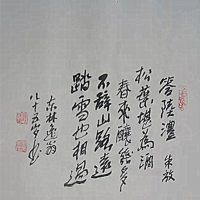 答陸澧 朱放
松葉堪為酒
春來釀幾多
不辭山路遠
踏雪也相過
东林逸翁
八十五岁书